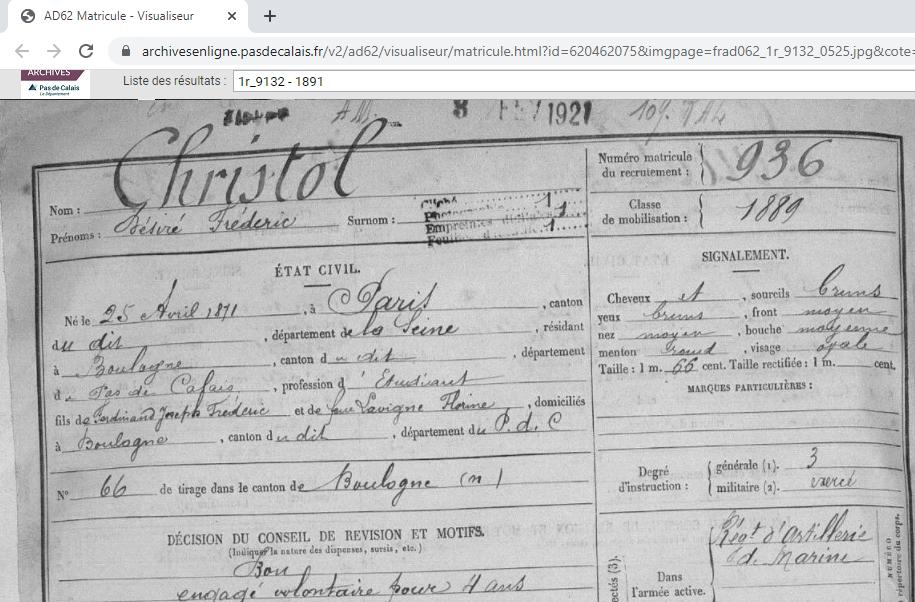 AD62 Matricule - Visualiseur
archivesenligne.pasdecalais.fr/v2/ad62/visualiseur/matricule.html?id=620462075&imgpage=frad062_1r_9132_0525.jpg&cote=
ARCHIVES
Pas de Calais
Le Département
Liste des résultats :
1r_9132 - 1891
8 FEV 1921
Nom : Christol
Prénoms : Désiré Fréderic Surnom :
1
1
1
Numéro matricule
du recrutement : 936
Classe
de mobilisation : 1889
ÉTAT CIVIL.
Né le 25 Avril 1871, à Paris, canton
du dit, département de la Seine, résidant
à Boulogne, canton du dit, département
d Pas de Calais, profession d' Etudiant
fils de Ferdinand Joseph Fréderic et de feue Lavigne Florine, domiciliés
à Boulogne, canton du dit, département du P. d. C
N° 66 de tirage dans le canton de Boulogne (n)
DÉCISION DU CONSEIL DE REVISION ET MOTIFS.
(Indiquer la nature des dispenses, sursis, etc.)
Bon
engagé volontaire pour 4 ans
SIGNALEMENT.
Cheveux et, sourcils bruns
yeux bruns, front moyen
nez moyen, bouche moyenne
menton rond, visage ovale
Taille : 1 m. 66 cent. Taille rectifiée : 1 m. cent.
MARQUES PARTICULIÈRES :
Degré
d'instruction :
générale (1). 3
militaire (2). exercé
Dans
l'armée active.
Régt d'Artillerie
de Marine
NUMÉRO
répertoire du corps.